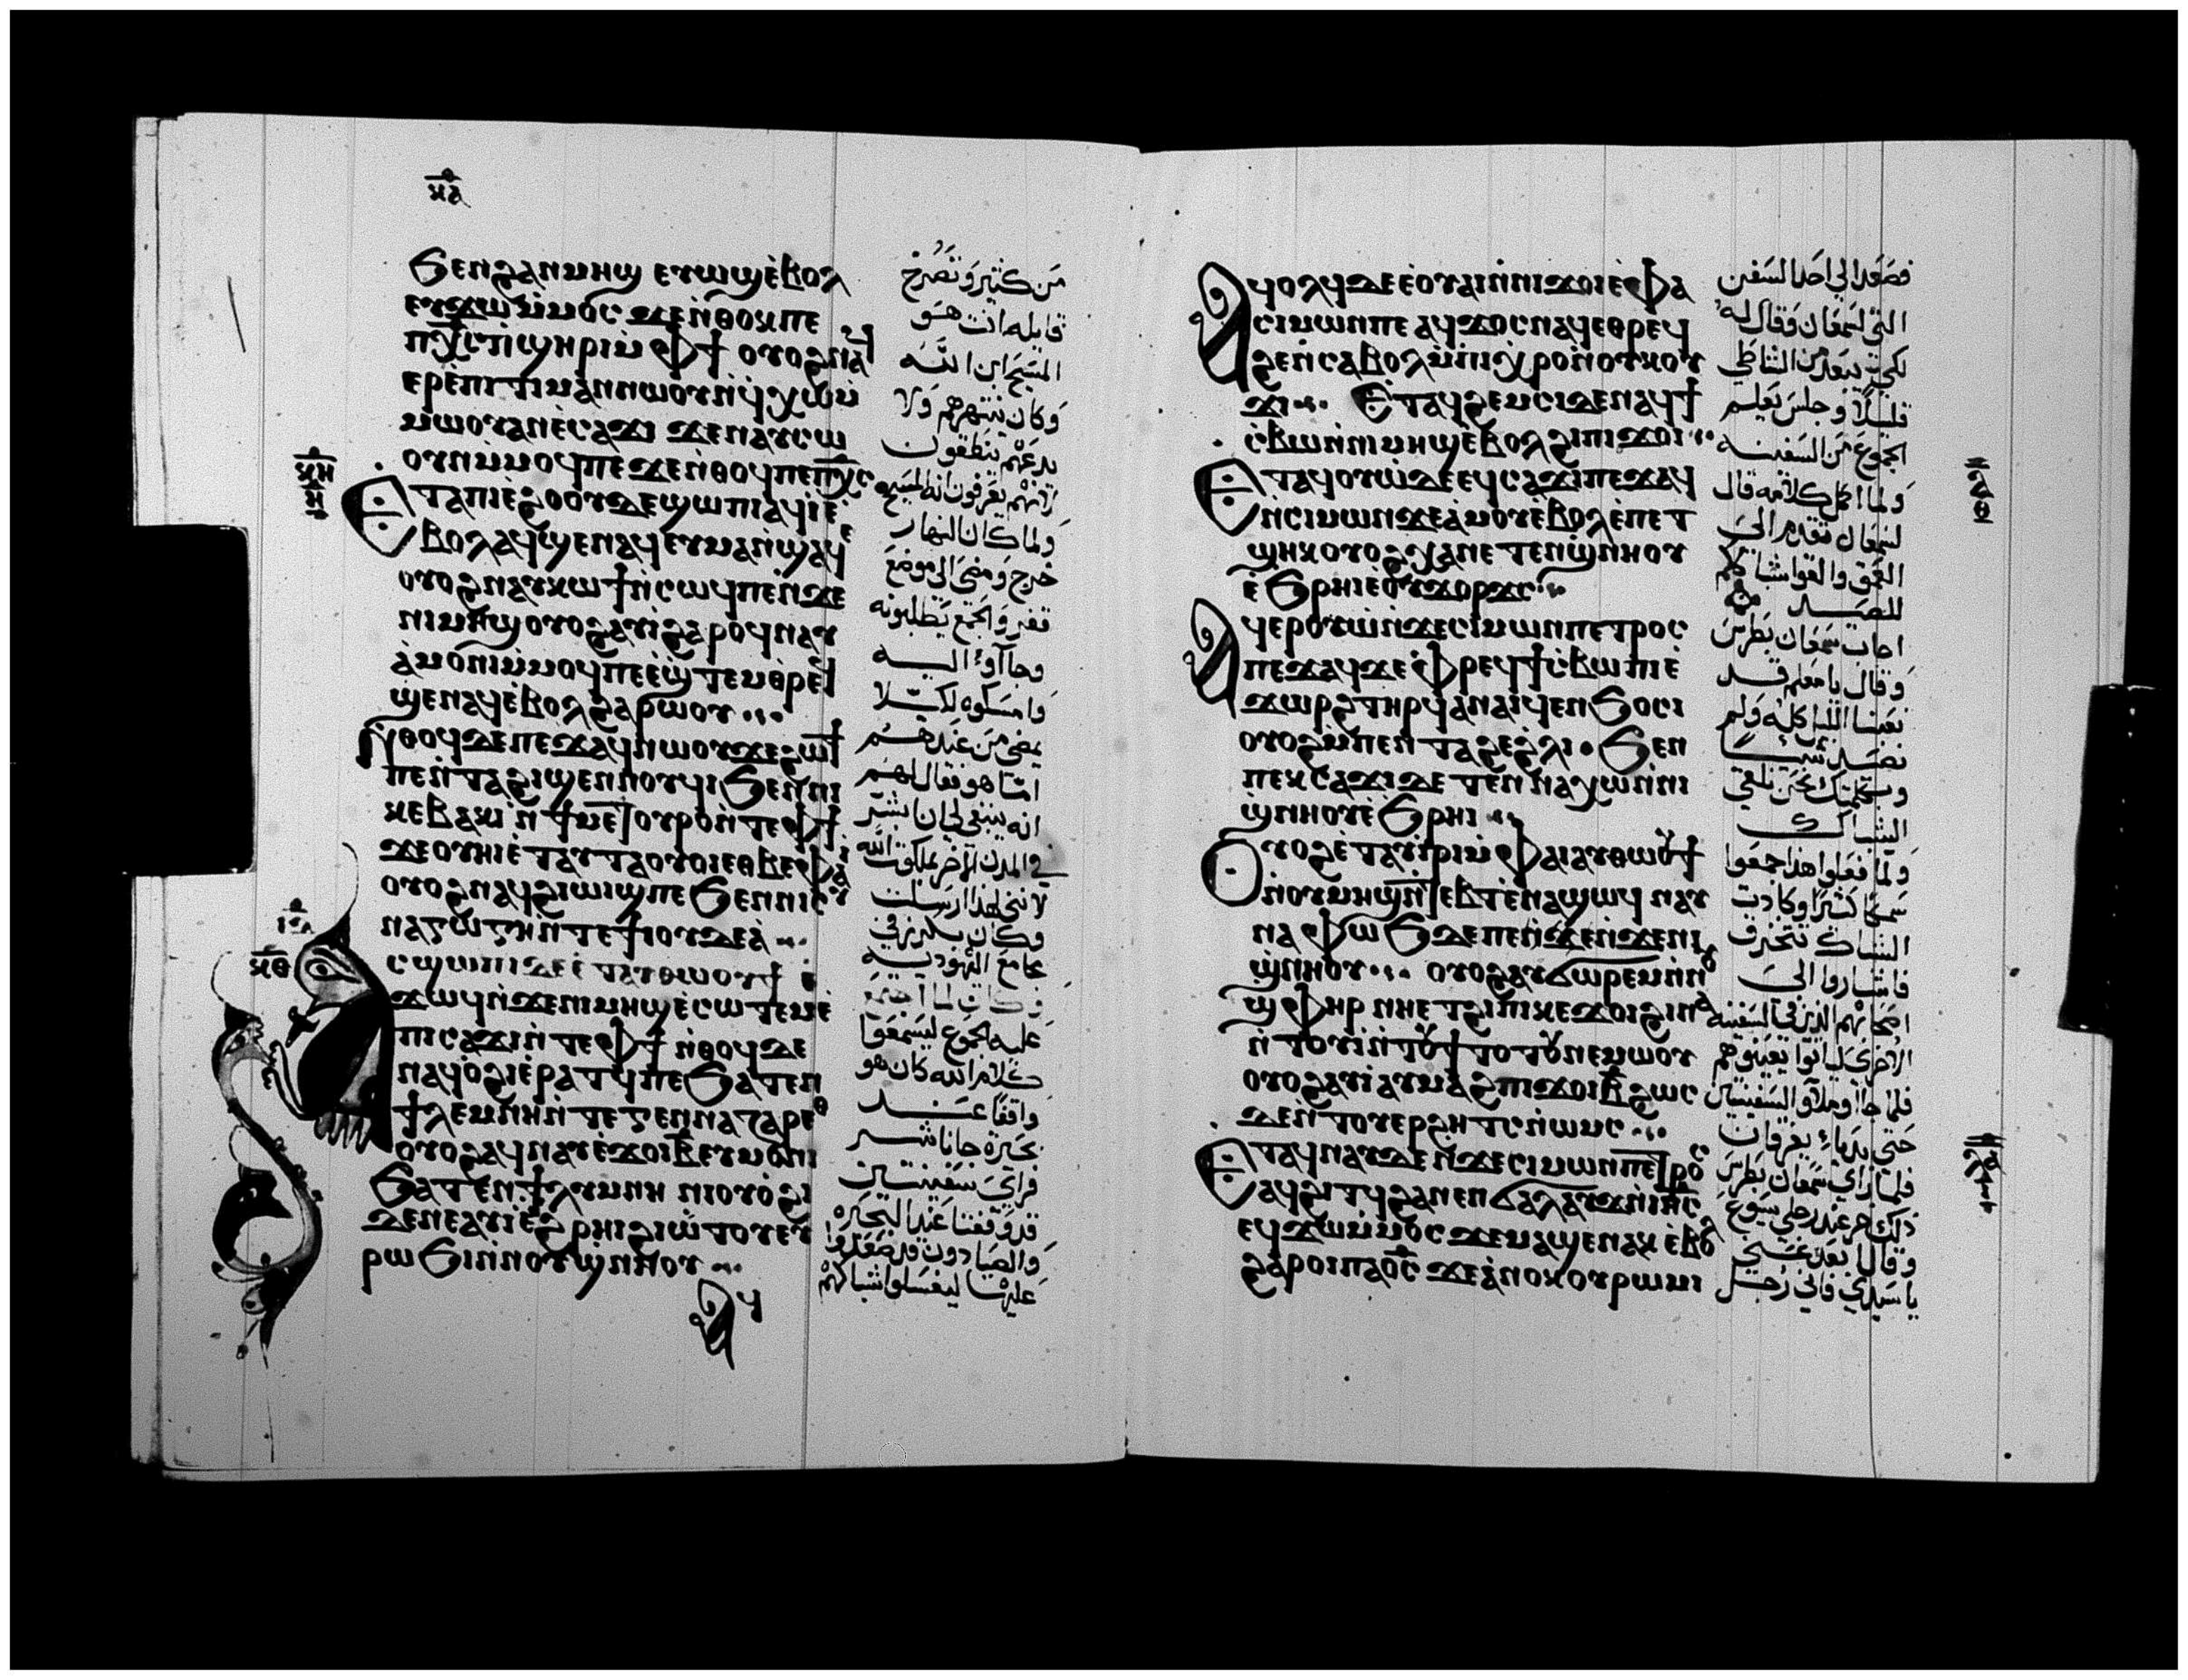 ⲕⲁ
ϧⲉⲛϩⲁⲛⲙⲏϣ ⲉⲩⲱϣⲉ̀ⲃⲟⲗ
ⲉⲩϫⲱⲙ̀ⲙⲟⲥ ϫⲉⲛ̀ⲑⲟⲕⲡⲉ
ⲡⲭ̅ⲥ̅ⲡ̀ϣⲏⲣⲓⲙ̀ⲫϯ ⲟⲩⲟϩⲛⲁϥ
ⲉⲣⲉ̀ⲡⲓⲧⲓⲙⲁⲛⲛⲱⲟⲩⲛ̀ϥⲭⲱⲙ̀
ⲙⲱⲟⲩⲁⲛⲉ̀ⲥⲁϫⲓ ϫⲉⲛⲁⲩⲥⲱ
ⲟⲩⲛⲙ̀ⲙⲟϥⲡⲉ ϫⲉⲛ̀ⲑⲟϥⲡⲉⲡⲭ̅ⲥ̅
ⲕⲏ
ⲏ
ⲉⲧⲁⲡⲓⲉ̀ϩⲟⲟⲩⲇⲉϣⲱⲡⲓⲁϥⲓⲉ̀
ⲃⲟⲗⲁϥϣⲉⲛⲁϥⲉⲩⲙⲁⲛ̀ϣⲁϥⲉ
ⲟⲩⲟϩⲛⲁⲩⲕⲱϯⲛ̀ⲥⲱϥⲡⲉⲛ̀ϫⲉ
ⲛⲓⲙⲏϣⲟⲩⲟϩⲁⲩⲓ̀ϩⲁⲣⲟϥⲛⲁⲩ
ⲁ̀ⲙⲟⲛⲓⲙ̀ⲙⲟϥⲡⲉⲉ̀ϣ̀ⲧⲉⲙⲑ̀ⲣⲉϥ
ϣⲉⲛⲁϥⲉ̀ⲃⲟⲗϩⲁⲣⲱⲟⲩ
ⲛ̀ⲑⲟϥⲇⲉⲡⲉϫⲁϥⲛⲱⲟⲩϫⲉϩⲱϯ
ⲡⲉⲛ̀ⲧⲁϩⲓϣⲉⲛⲛⲟⲩϥⲓϧⲉⲛⲛⲓ
ⲕⲉⲃⲁⲕⲓ ⲛ̀ϯⲙⲉⲧⲟⲩⲣⲟⲛ̀ⲧⲉⲫϯ
ϫⲉⲟⲩⲏⲓⲉ̀ⲧⲁⲩⲧⲁⲟⲩⲟⲓⲉⲑⲃⲉⲫⲁⲓ
ⲟⲩⲟϩⲛⲁϥϩⲓⲱⲓϣⲡⲉϧⲉⲛⲛⲓⲥⲩ
ⲛⲁⲅⲱⲅⲏⲛ̀ⲧⲉϯⲓⲟⲩⲇⲉⲁ̀
ⲕⲑ
ⲁⲥϣⲱⲡⲓⲇⲉⲉ̀ⲧⲁⲩⲑⲱⲟⲩϯ ⲉ̀
ϫⲱϥⲛ̀ϫⲉⲛⲓⲙⲏϣⲉ̀ⲥⲱⲧⲉⲙⲉ̀
ⲡⲓⲥⲁϫⲓⲛ̀ⲧⲉⲫϯ ⲛ̀ⲑⲟϥⲇⲉ
ⲛⲁϥⲟ̀ϩⲓⲉ̀ⲣⲁⲧϥⲡⲉϧⲁⲧⲉⲛ
ϯⲗⲩⲙⲛⲏⲛ̀ⲧⲉⲅⲉⲛⲛⲁⲍⲁⲣⲉⲑ
ⲟⲩⲟϩⲁϥⲛⲁⲩⲉ̀ϫⲟⲓⲃ̅ⲉⲩⲙⲟⲛⲓ
ϧⲁⲧⲉⲛϯⲗⲩⲙⲛⲏ ⲛⲓⲟⲩⲟϩⲓ
ⲇⲉⲛⲉⲁⲩⲓⲉ̀ϩ̀ⲣⲏⲓϩⲓⲱⲧⲟⲩⲉⲩ
ⲣⲱϧⲓⲛ̀ⲛⲟⲩϣ̀ⲛⲏⲟⲩ
ⲁϥ
من كثير وتصرخ
قايله انت هو
المسيح ابن الله
وكان ينتهرهم ولا
يدعهم ينطقون
لانهم يعرفون انه المسيح
ولما كان النهار
خرج ومضى الى موضع
قفر والجمع يطلبونه
وجاآوا اليه
وامسكوه لكيلا
يمضي من عندهم
اما هو فقال لهم
انه ينبغي لي ان ابشر
في المدن الاخر بملكوت الله
لانني لهذا ارسلت
وكان يكرز في
مجامع اليهوديه
وكان لما اجتمع
عليه الجموع ليسمعوا
كلام الله كان هو
واقفا عند
بحيرة جاناشر
فراي سفينتين
قد وقفتا عند البحيره
والصيادون قد صعدوا
عليها ليغسلوا شباكهم
ⲁϥⲟⲗϥⲇⲉⲉ̀ⲟⲩⲁⲓⲛ̀ⲛⲓϫⲟⲓⲉ̀ⲫⲁ
ⲥⲓⲙⲱⲛⲡⲉ ⲁϥϫⲟⲥⲛⲁϥⲉⲑⲣⲉϥ
ϩⲉⲛⲥⲁⲃⲟⲗⲙ̀ⲡⲓⲭ̀ⲣⲟⲛ̀ⲟⲩⲕⲟⲩ
ϫⲓ ⲉ̀ⲧⲁϥϩⲉⲙⲥⲓⲇⲉⲛⲁϥϯ
ⲥ̀ⲃⲱⲛ̀ⲛⲓⲙⲏϣⲉ̀ⲃⲟⲗϩⲓⲡⲓϫⲟⲓ
ⲉⲧⲁϥⲟⲩⲱ̀ⲇⲉⲉϥⲥⲁϫⲓⲡⲉϫⲁϥ
ⲛ̀ⲥⲓⲙⲱⲛϫⲉⲁ̀ⲙⲟⲩⲉ̀ⲃⲟⲗⲉ̀ⲡⲉⲧ
ϣⲏⲕⲟⲩⲟϩⲭⲁⲛⲉⲧⲉⲛϣ̀ⲛⲏⲟⲩ
ⲉ̀ϧⲣⲏⲓⲉ̀ⲟⲩϫⲟⲣϫⲥ
ⲁϥⲉⲣⲟⲩⲱ̀ⲛ̀ϫⲉⲥⲓⲙⲱⲛⲡⲉⲧⲣⲟⲥ
ⲡⲉϫⲁϥϫⲉ ⲫ̀ⲣⲉϥϯⲥ̀ⲃⲱⲡⲓⲉ̀
ϫⲱⲣϩⲧⲏⲣϥⲁⲛⲁⲓϥⲉⲛϧⲟⲥⲓ
ⲟⲩⲟϩⲙ̀ⲡⲉⲛⲧⲁϩⲉϩ̀ⲗⲓ ϧⲉⲛ
ⲡⲉⲕⲥⲁϫⲓⲇⲉⲧⲉⲛⲛⲁⲭⲱⲛ̀ⲛⲓ
ϣ̀ⲛⲏⲟⲩⲉ̀ϧⲣⲏⲓ
ⲟⲩⲟϩⲉ̀ⲧⲁⲩⲓ̀ⲣⲓⲙ̀ⲫⲁⲓⲁⲩⲑⲱⲟⲩϯ
ⲛ̀ⲟⲩⲙⲏϣⲛ̀ⲧⲉⲃⲧⲉ̀ⲛⲁϣⲱϥ ⲛⲁⲩ
ⲛⲁⲫⲱϧⲇⲉⲡⲉⲛ̀ϫⲉⲛ̀ϫⲉⲛⲓ
ϣ̀ⲛⲏⲟⲩ ⲟⲩⲟϩⲁⲩϭⲱⲣⲉⲙⲛ̀ⲛⲟⲩ
ϣ̀ⲫⲏⲣ ⲛⲏⲉⲧϩⲓⲡⲓⲕⲉϫⲟⲓϩⲓⲛⲁ
ⲛ̀ⲧⲟⲩⲓ̀ⲛ̀ⲧⲟⲩϯⲧⲟⲧⲟⲩⲛⲉⲙⲱⲟⲩ
ⲟⲩⲟϩⲁⲩⲓ̀ⲁⲩⲙⲁϩⲡⲓϫⲟⲓⲃ̅ϩⲱⲥ
ϫⲉⲛ̀ⲧⲟⲩⲉⲣϩⲏⲧⲥⲛ̀ⲱⲙⲥ
ⲉⲧⲁϥⲛⲁⲩⲇⲉ ⲛ̀ϫⲉⲥⲓⲙⲱⲛⲡⲉⲧⲣⲟⲥ
ⲁϥϩⲓⲧϥϩⲁⲛⲉⲛϭⲁⲗⲁⲩϫⲛ̀ⲓⲏ̅ⲥ̅
ⲉϥϫⲱⲙ̀ⲙⲟⲥ ϫⲉⲙⲁϣⲉⲛⲁⲕ ⲉ̀ⲃⲟⲗ
ϩⲁⲣⲟⲓⲡⲁⲟ̅ⲥ̅ ϫⲉⲁ̀ⲛⲟⲕⲟⲩⲣⲱⲙⲓ
فصعد الى احد السفن
التي لسمعان وقال له
لكي يبعد من الشاطي
قليلا وجلس يعلم
الجموع من السفينه
ولما اكمل كلامه قال
لسمعان تقدم الى
العمق والقوا شباككم
للصيد
اجاب سمعان بطرس
وقال يا معلم قد
تعبنا الليل كله ولم
نصد شيا
وبكلمتك نحن نلقي
الشباك
ولما فعلوا هذا جمعوا
سمكا كثيرا وكادت
الشباك تتخرق
فاشاروا الى
اصحابهم الذين في السفينه
الاخرى ليأتوا يعينوهم
فلما جاا وملاوا السفينتين
حتى بدأا يغرقان
فلما راي سمعان بطرس
ذلك خر عند رجلي يسوع
وقال ابعد عني
يا سيدي فاني رجل